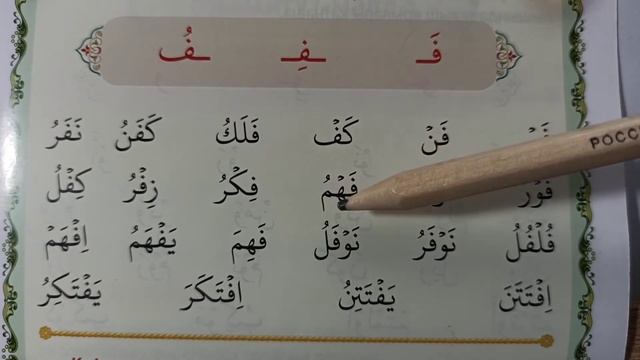 فَـ ـفِـ ـفُ
فَنْ كَفْ فَلَكُ كَفَنُ نَفَرُ
فَهْمُ فِكْرُ زِفْرُ كِفْلُ
فُلْفُلُ نَوْفَرُ نَوْفَلُ فَهِمَ يَفْهَمُ اِفْهَمْ
اِفْتَتَنَ يَفْتَتِنُ اِفْتَكَرَ يَفْتَكِرُ
РОСС